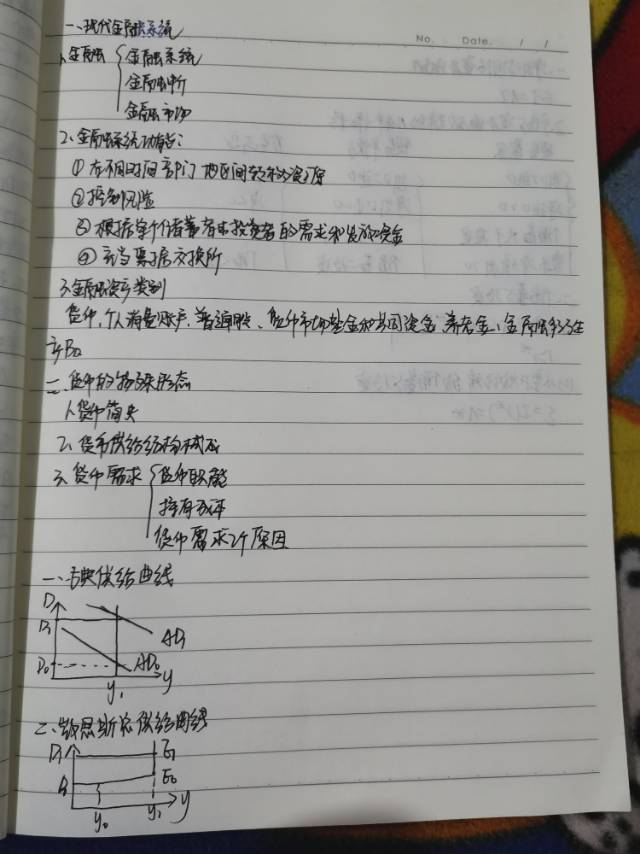 No. Date. / /
一、现代金融系统
1、金融 金融系统
金融中介
金融市场
2、金融系统功能:
① 在不同时间 部门 地区间
② 控制风险
③ 根据单个储蓄者和投资者的需求和发放资金
④ 充当票据交换所
3、金融资产类别
货币,个人消费账户,普通股、货币市场基金和共同资金 养老金、金融衍生
产品
二、货币的特殊形态
1、货币简史
2、货币供给结构构成
3、货币需求 货币职能
持有成本
货币需求2个原因
一、古典供给曲线
P
P₁
P₀
AD₁
AD₀
y₁ y
二、凯恩斯主供给曲线
P₁ E₁
P₀ E₀
y₀ y₁ y